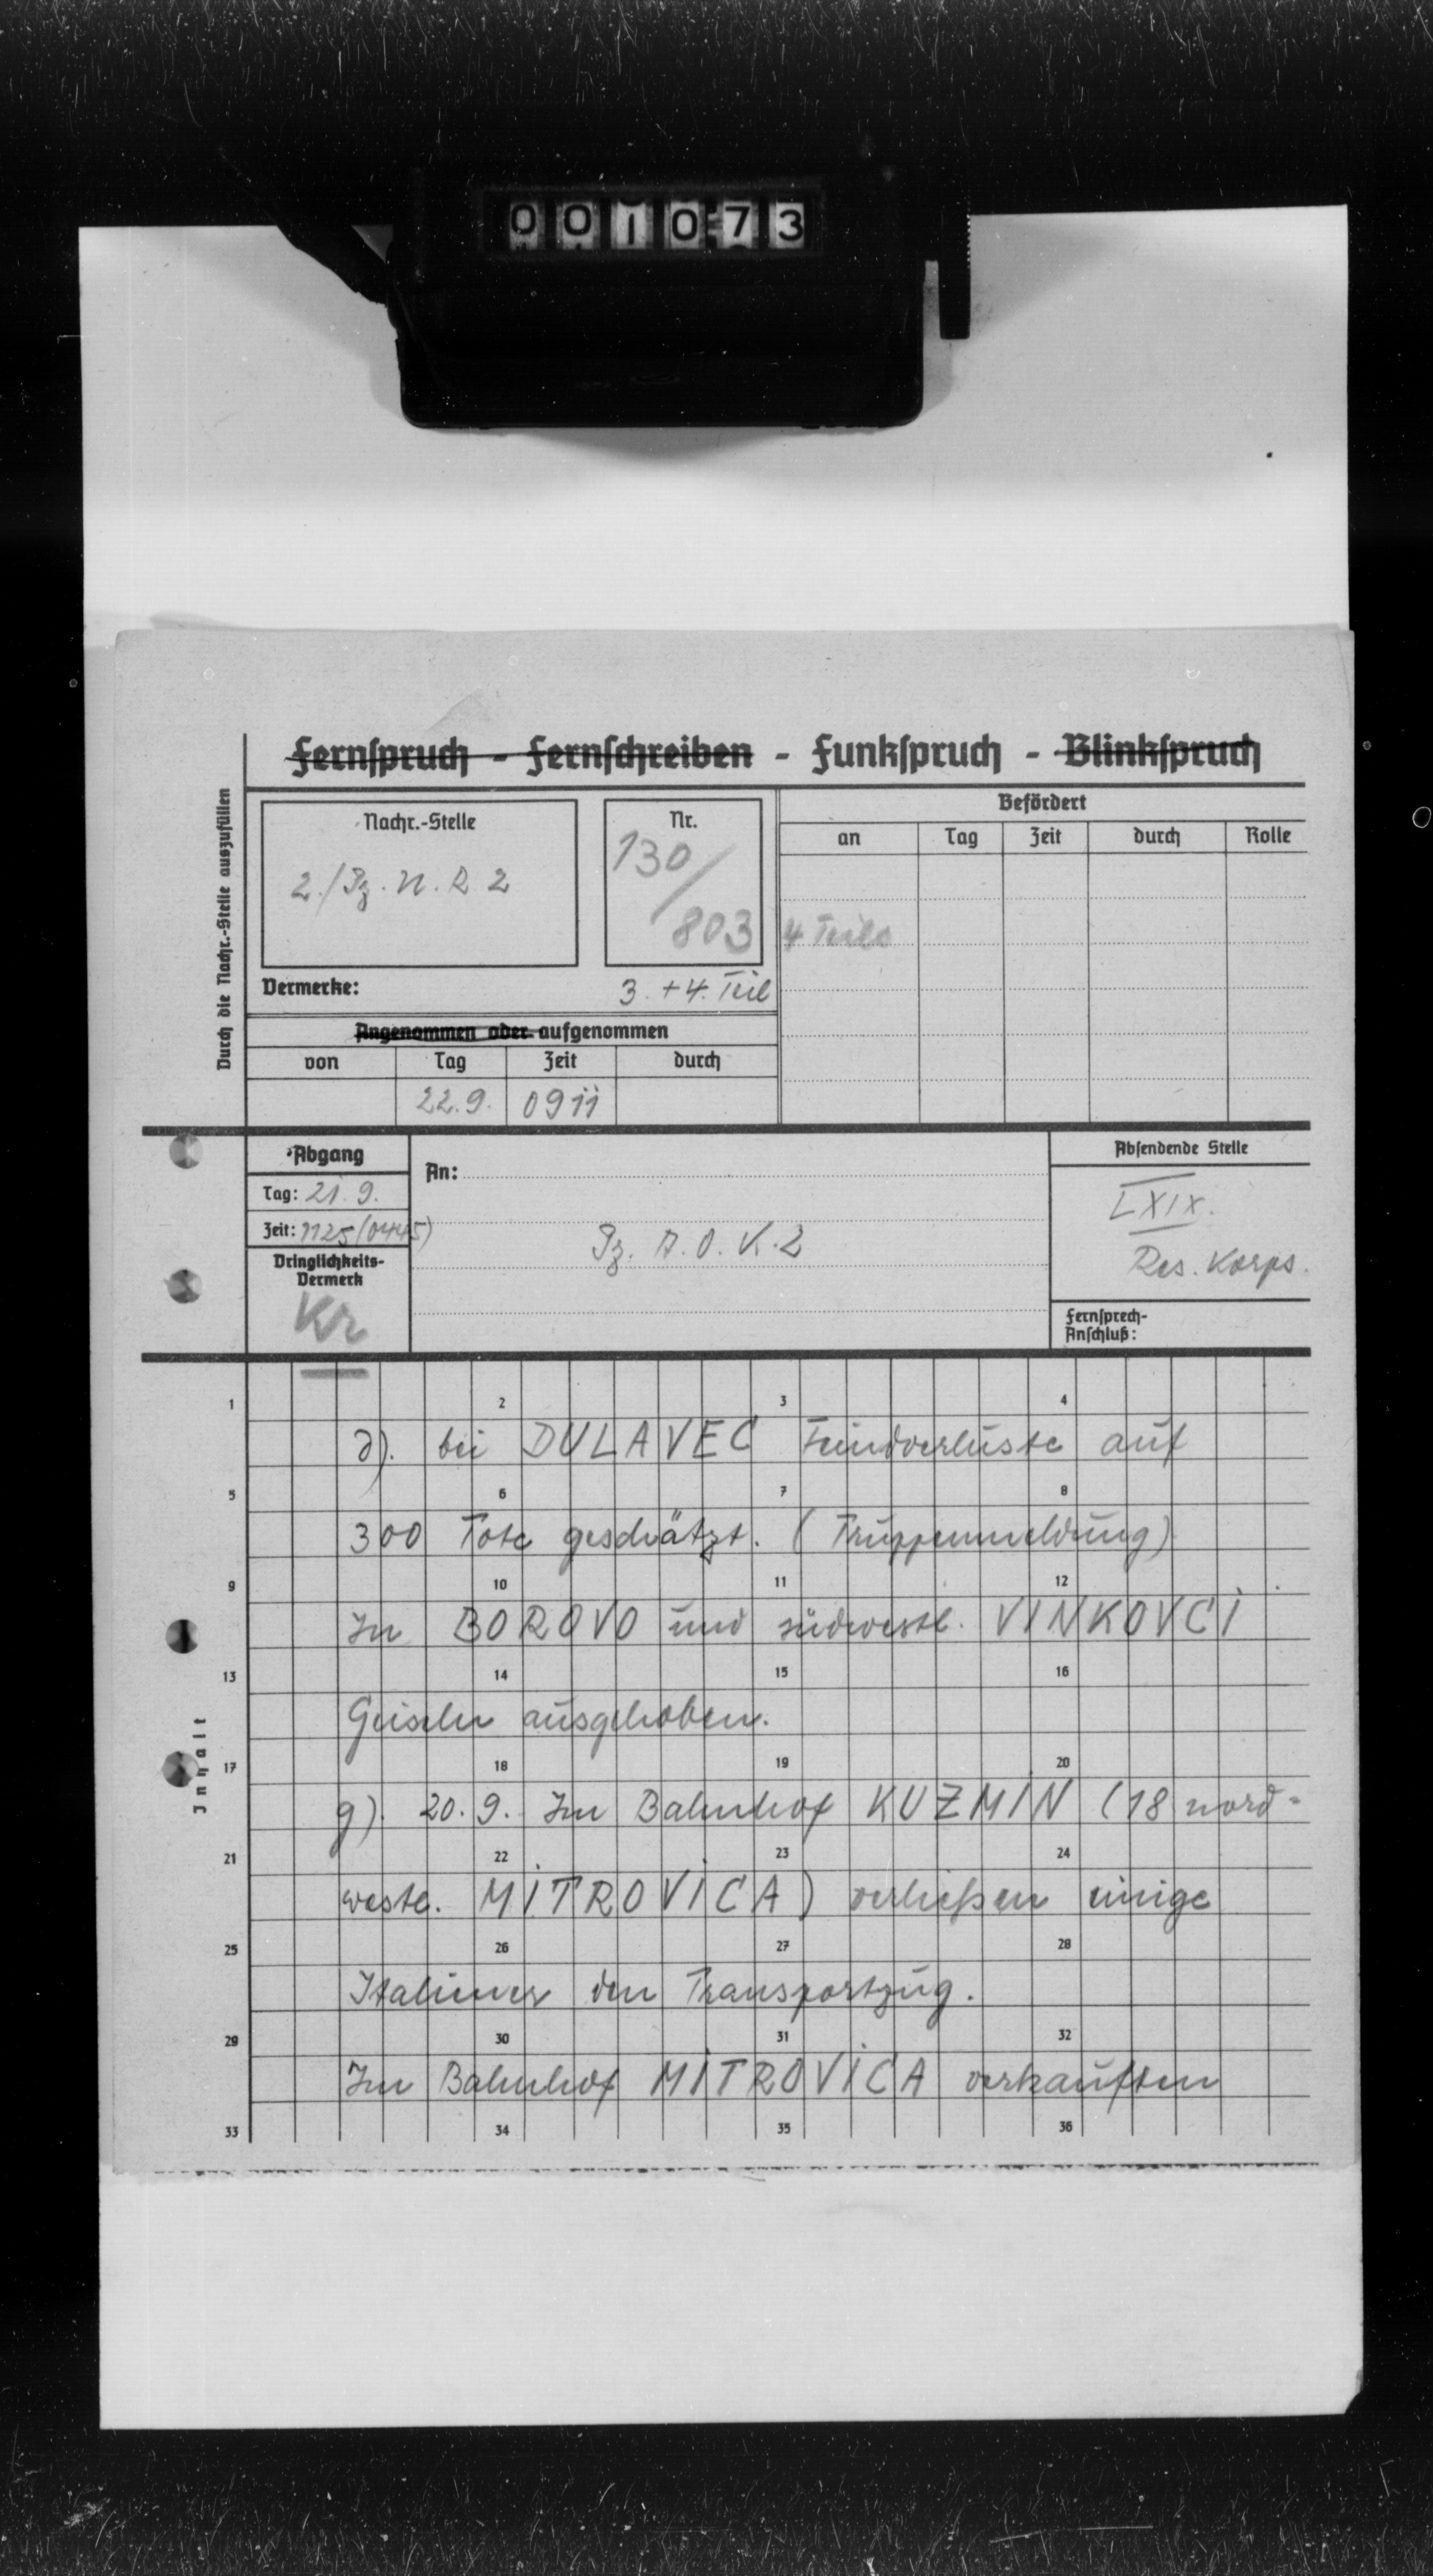 001073
Fernspruch - Fernschreiben - Funkspruch - Blinkspruch
Durch die Nachr.-Stelle auszufüllen
Nachr.-Stelle
2./Pz. N. R 2
Nr.
130/803
Befördert
an Tag Zeit durch Rolle
4 Teile
Vermerke: 3. + 4. Teil
Angenommen oder aufgenommen
von Tag Zeit durch
22.9. 0911
Abgang
Tag: 21.9.
Zeit: 1125 (0445)
Dringlichkeits-
Vermerk
Kr
An:
Pz. A.O.K. 2
Absendende Stelle
LXIX.
Res. Korps.
Fernsprech-
Anschluß:
Inhalt
1 2 3 4
d). bei DULAVEC Feindverluste auf
5 6 7 8
300 Tote geschätzt. (Truppenmeldung)
9 10 11 12
In BOROVO und südwestl. VINKOVCI
13 14 15 16
Geiseln ausgehoben.
17 18 19 20
g). 20.9. Im Bahnhof KUZMIN (18 nord-
21 22 23 24
westl. MITROVICA) verließen einige
25 26 27 28
Italiener den Transportzug.
29 30 31 32
Im Bahnhof MITROVICA verkauften
33 34 35 36